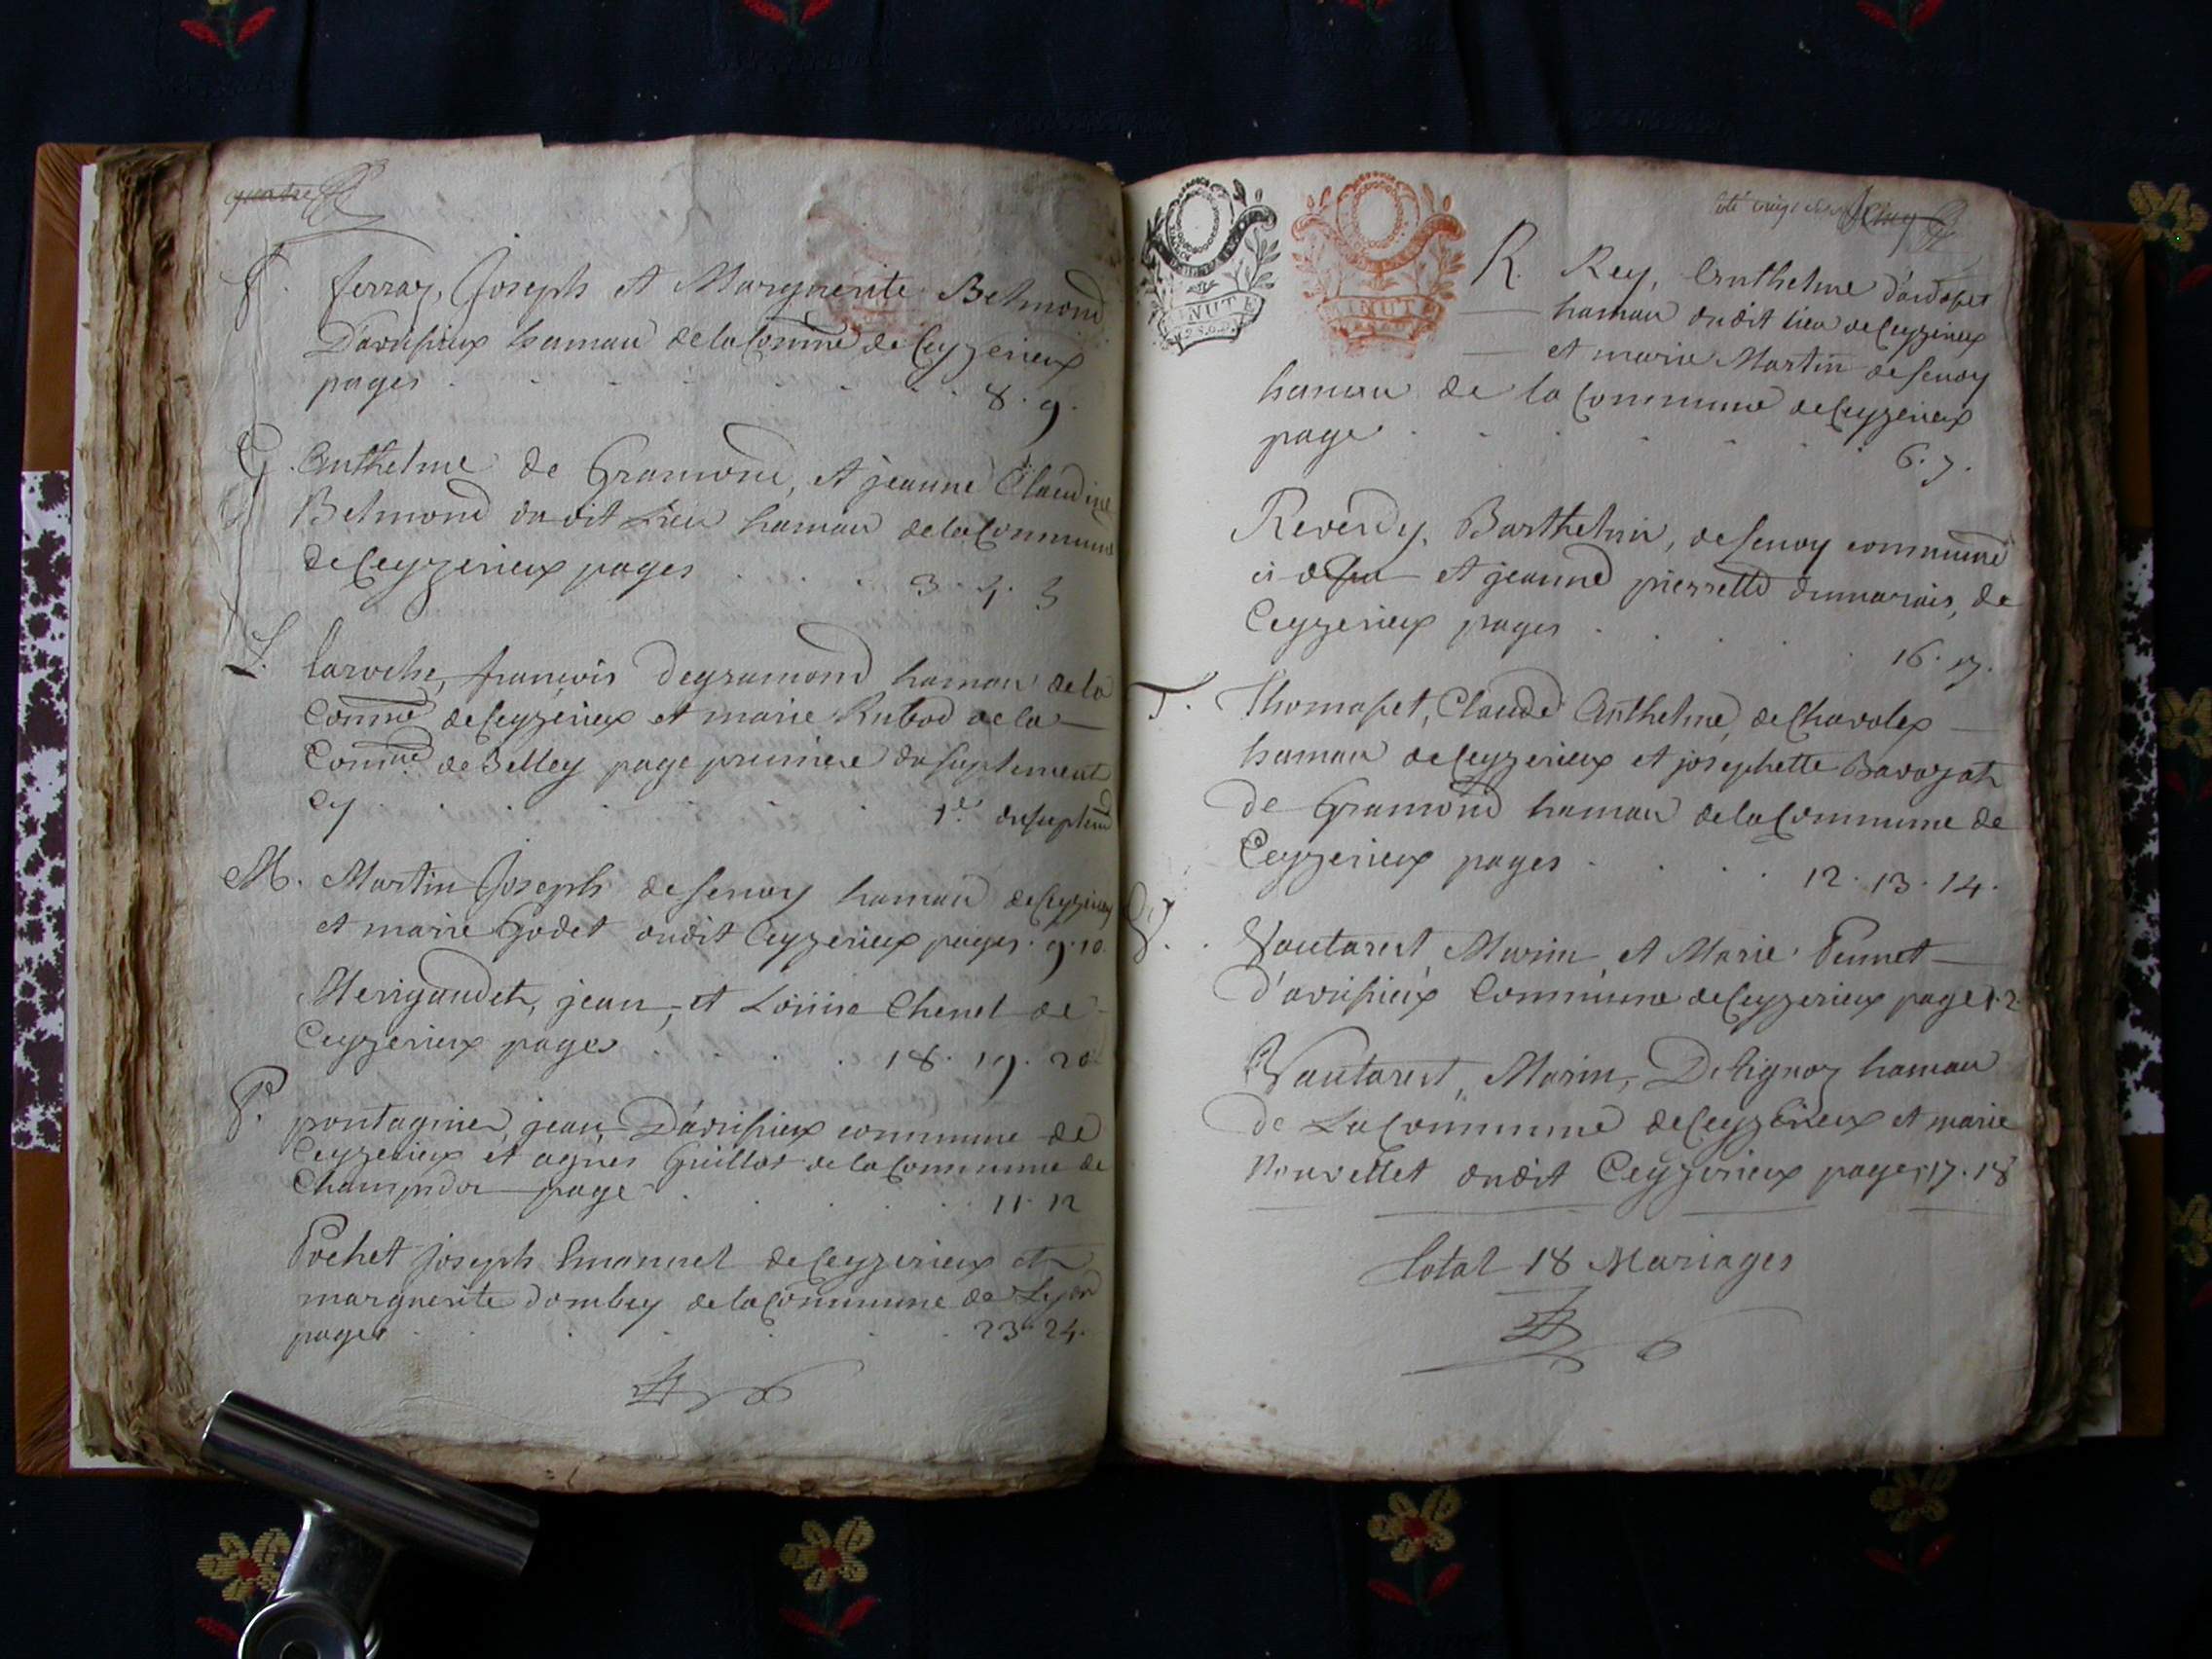 quatre
F. ferraz, Joseph et Marguerite Belmond
D'avrisieux hamau de la Comme de Ceyzerieux
pages . . . . . . . . 8. 9.
G. Anthelme de Gramond, et jeanne Claudine
Belmond dudit Lieu hamau de la Commune
de Ceyzerieux pages . . . 3. 4. 5
L. laroche, françois de gramond hamau de la
Comme de Ceyzerieux et marie Rubod de la
Comme de Belley page premiere du suplement
Cy . . . . . 1.e du suplemt
M. Martin Joseph de senoy hamau de Ceyzerieu
et marie Godet dudit Ceyzerieux pages. 9. 10.
Merigaudet, jean, et Louise Chenel de
Ceyzerieux pages . . . . 18. 19. 20.
P. pontaginer, jean, D'avrisieux commune de
Ceyzerieux et agnes Guillot de la Commune de
Champdor page . . . . 11. 12
Pochet Joseph Emanuel de Ceyzerieux et
marguerite dombey de la Commune de Lyon
pages . . . . . . 23. 24.
MINUTE
MINUTE
R. Rey, Anthelme d'ardosset
hamau dudit lieu de Ceyzerieux
et marie Martin de senoy
hamau de la Commune de Ceyzerieux
page . . . . . . . 6. 7.
Reverdy, Barthelmi, de senoy commune
et jeanne pierrette dumarais, de
Ceyzerieux pages . . . . . 16. 17.
T. Thomasset, Claude Anthelme, de Chavolex
hamau de Ceyzerieux et josephette Bavozat
de Gramond hamau de la Commune de
Ceyzerieux pages . . . . 12. 13. 14.
V. Vautaret Marin, et Marie Pennet
d'avrisieux Commune de Ceyzerieux page 1. 2.
Vautaret, Marin, De lignoz hamau
de La Commune de Ceyzerieux et marie
Nouvellet dudit Ceyzerieux pages 17. 18
total 18 Mariages